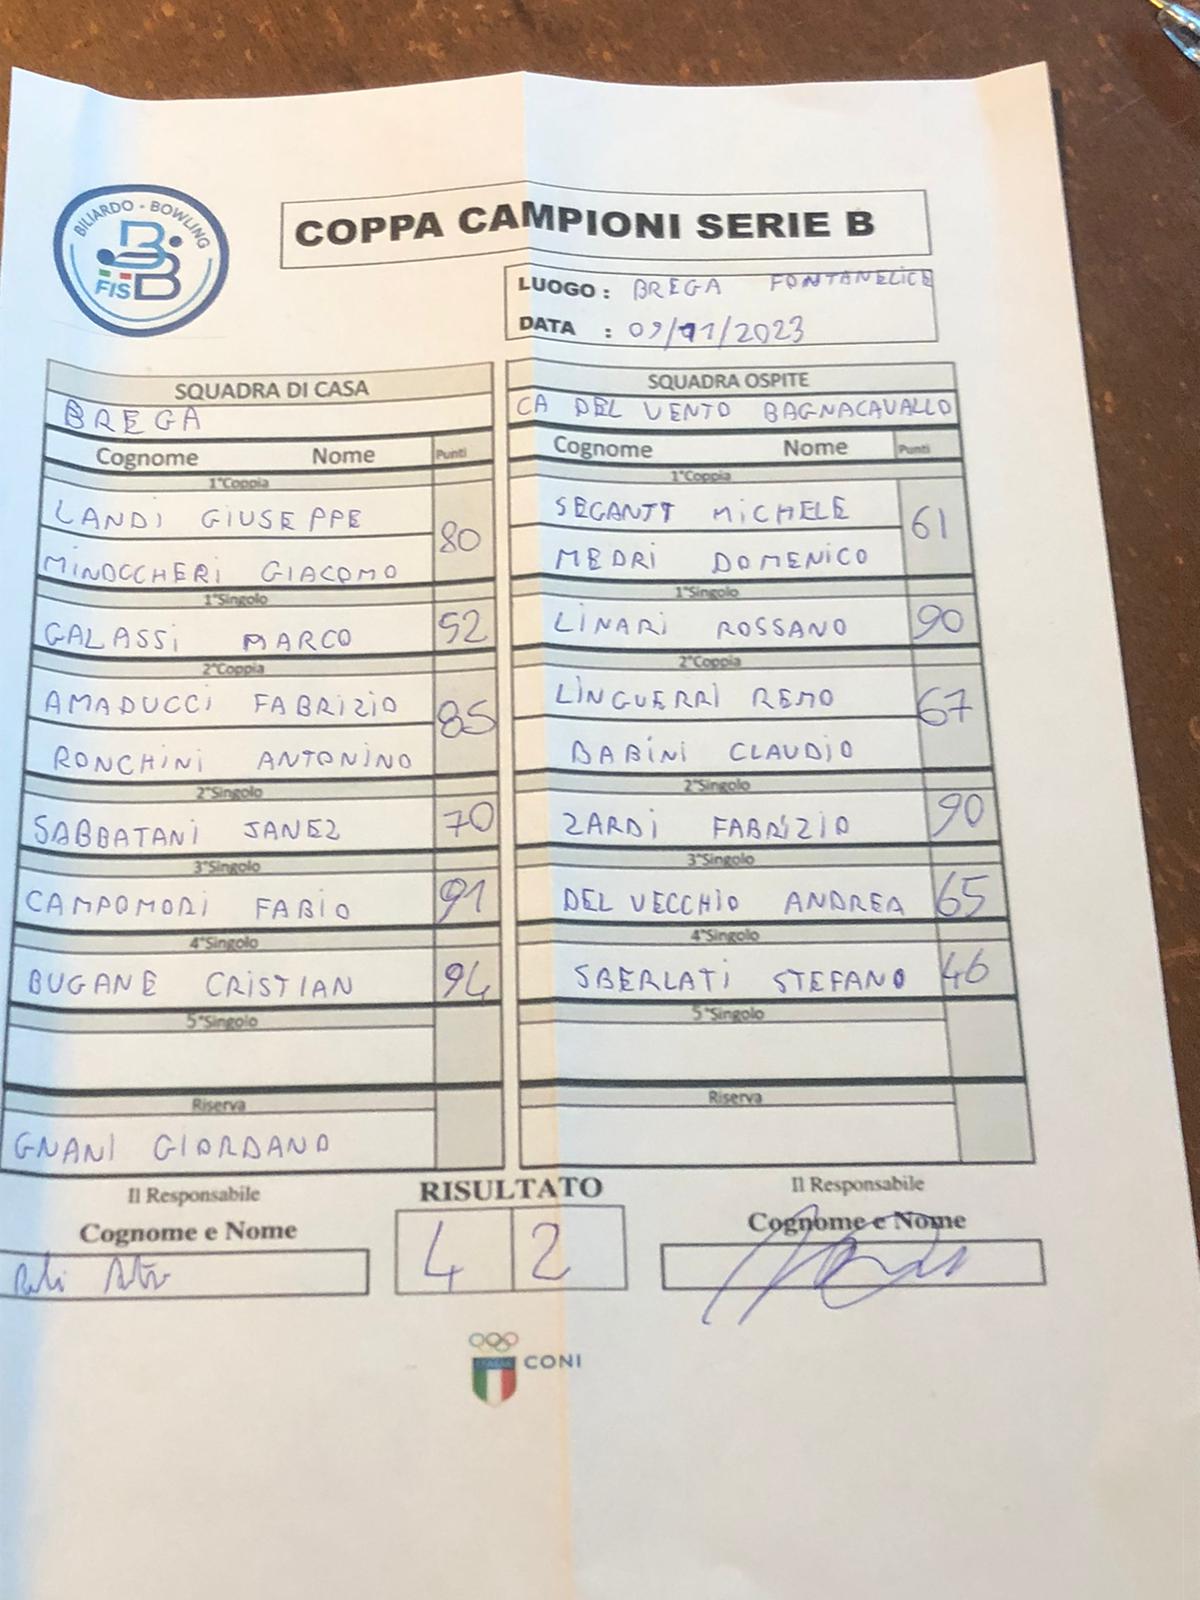 BILIARDO - BOWLING
FISBB
COPPA CAMPIONI SERIE B
LUOGO : BREGA FONTANELICE
DATA : 09/11/2023
SQUADRA DI CASA
BREGA
Cognome Nome Punti
1°Coppia
LANDI GIUSEPPE
80
MINOCCHERI GIACOMO
1°Singolo
GALASSI MARCO 52
2°Coppia
AMADUCCI FABRIZIO
85
RONCHINI ANTONINO
2°Singolo
SABBATANI JANEZ 70
3°Singolo
CAMPOMORI FABIO 91
4°Singolo
BUGANE CRISTIAN 94
5°Singolo
Riserva
GNANI GIORDANO
SQUADRA OSPITE
CA DEL VENTO BAGNACAVALLO
Cognome Nome Punti
1°Coppia
MICHELE
61
MEDRI DOMENICO
1°Singolo
LINARI ROSSANO 90
2°Coppia
LINGUERRI REMO
67
BABINI CLAUDIO
2°Singolo
ZARDI FABRIZIO 90
3°Singolo
DEL VECCHIO ANDREA 65
4°Singolo
SBERLATI STEFANO 46
5°Singolo
Riserva
Il Responsabile
Cognome e Nome
RISULTATO
4 2
Il Responsabile
Cognome e Nome
ITALIA
CONI